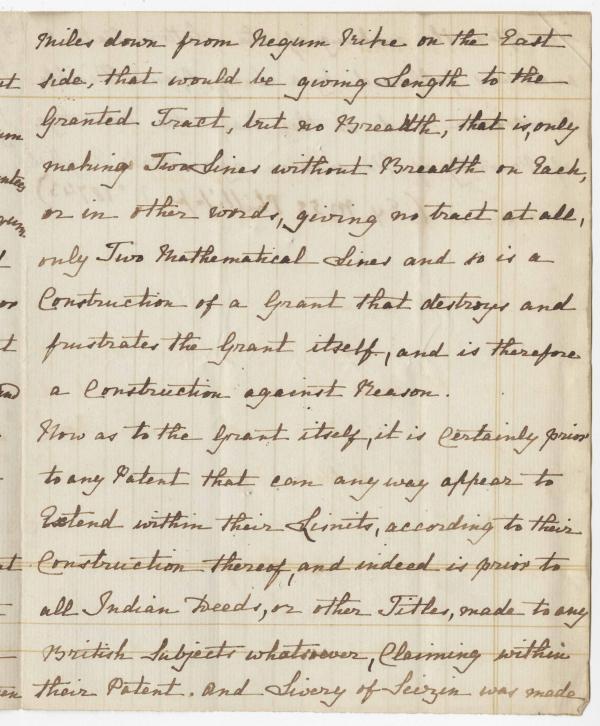 miles down from Negum Kike on the East
side, that would be giving Length to the
Granted Tract, but no Breadth, that is, only
making Two Lines without Breadth on Each,
or in other words, giving no tract at all,
only Two Mathematical Lines and so is a
Construction of a Grant that destroys and
frustrates the Grant itself, and is therefore
a Construction against Reason.
Now as to the Grant itself, it is Certainly prior
to any Patent that can any way appear to
Extend within their Limits, according to their
Construction thereof, and indeed is prior to
all Indian Deeds, or other Titles, made to any
British Subjects whatsoever, Claiming within
their Patent. And Livery of Seizin was made